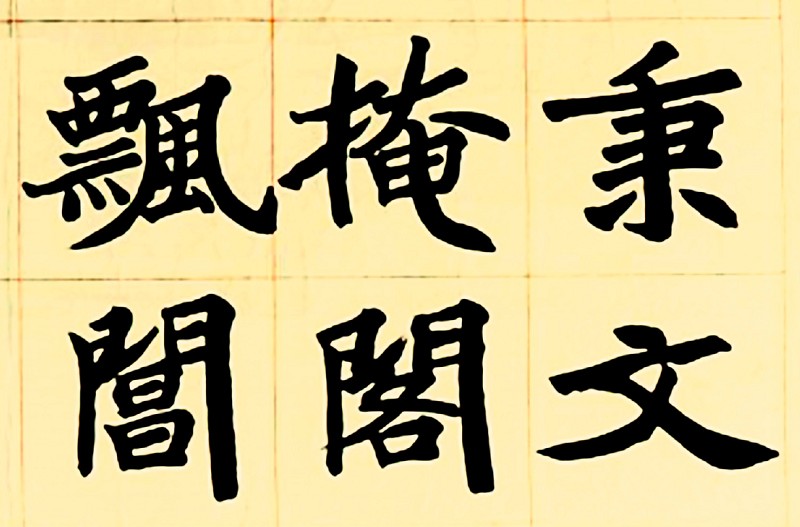 秉文
掩閣
飄閶